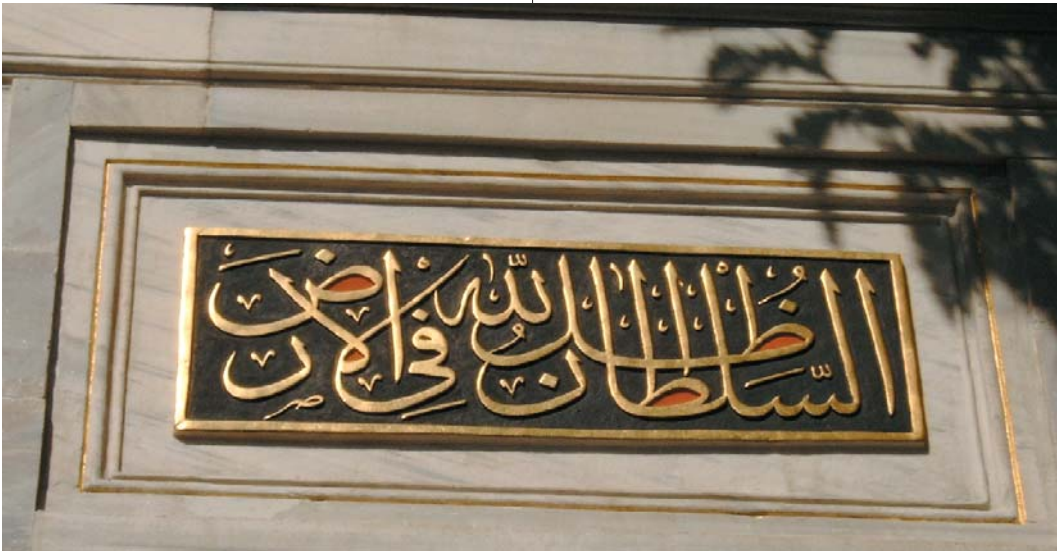 السلطان ظل الله في الارض